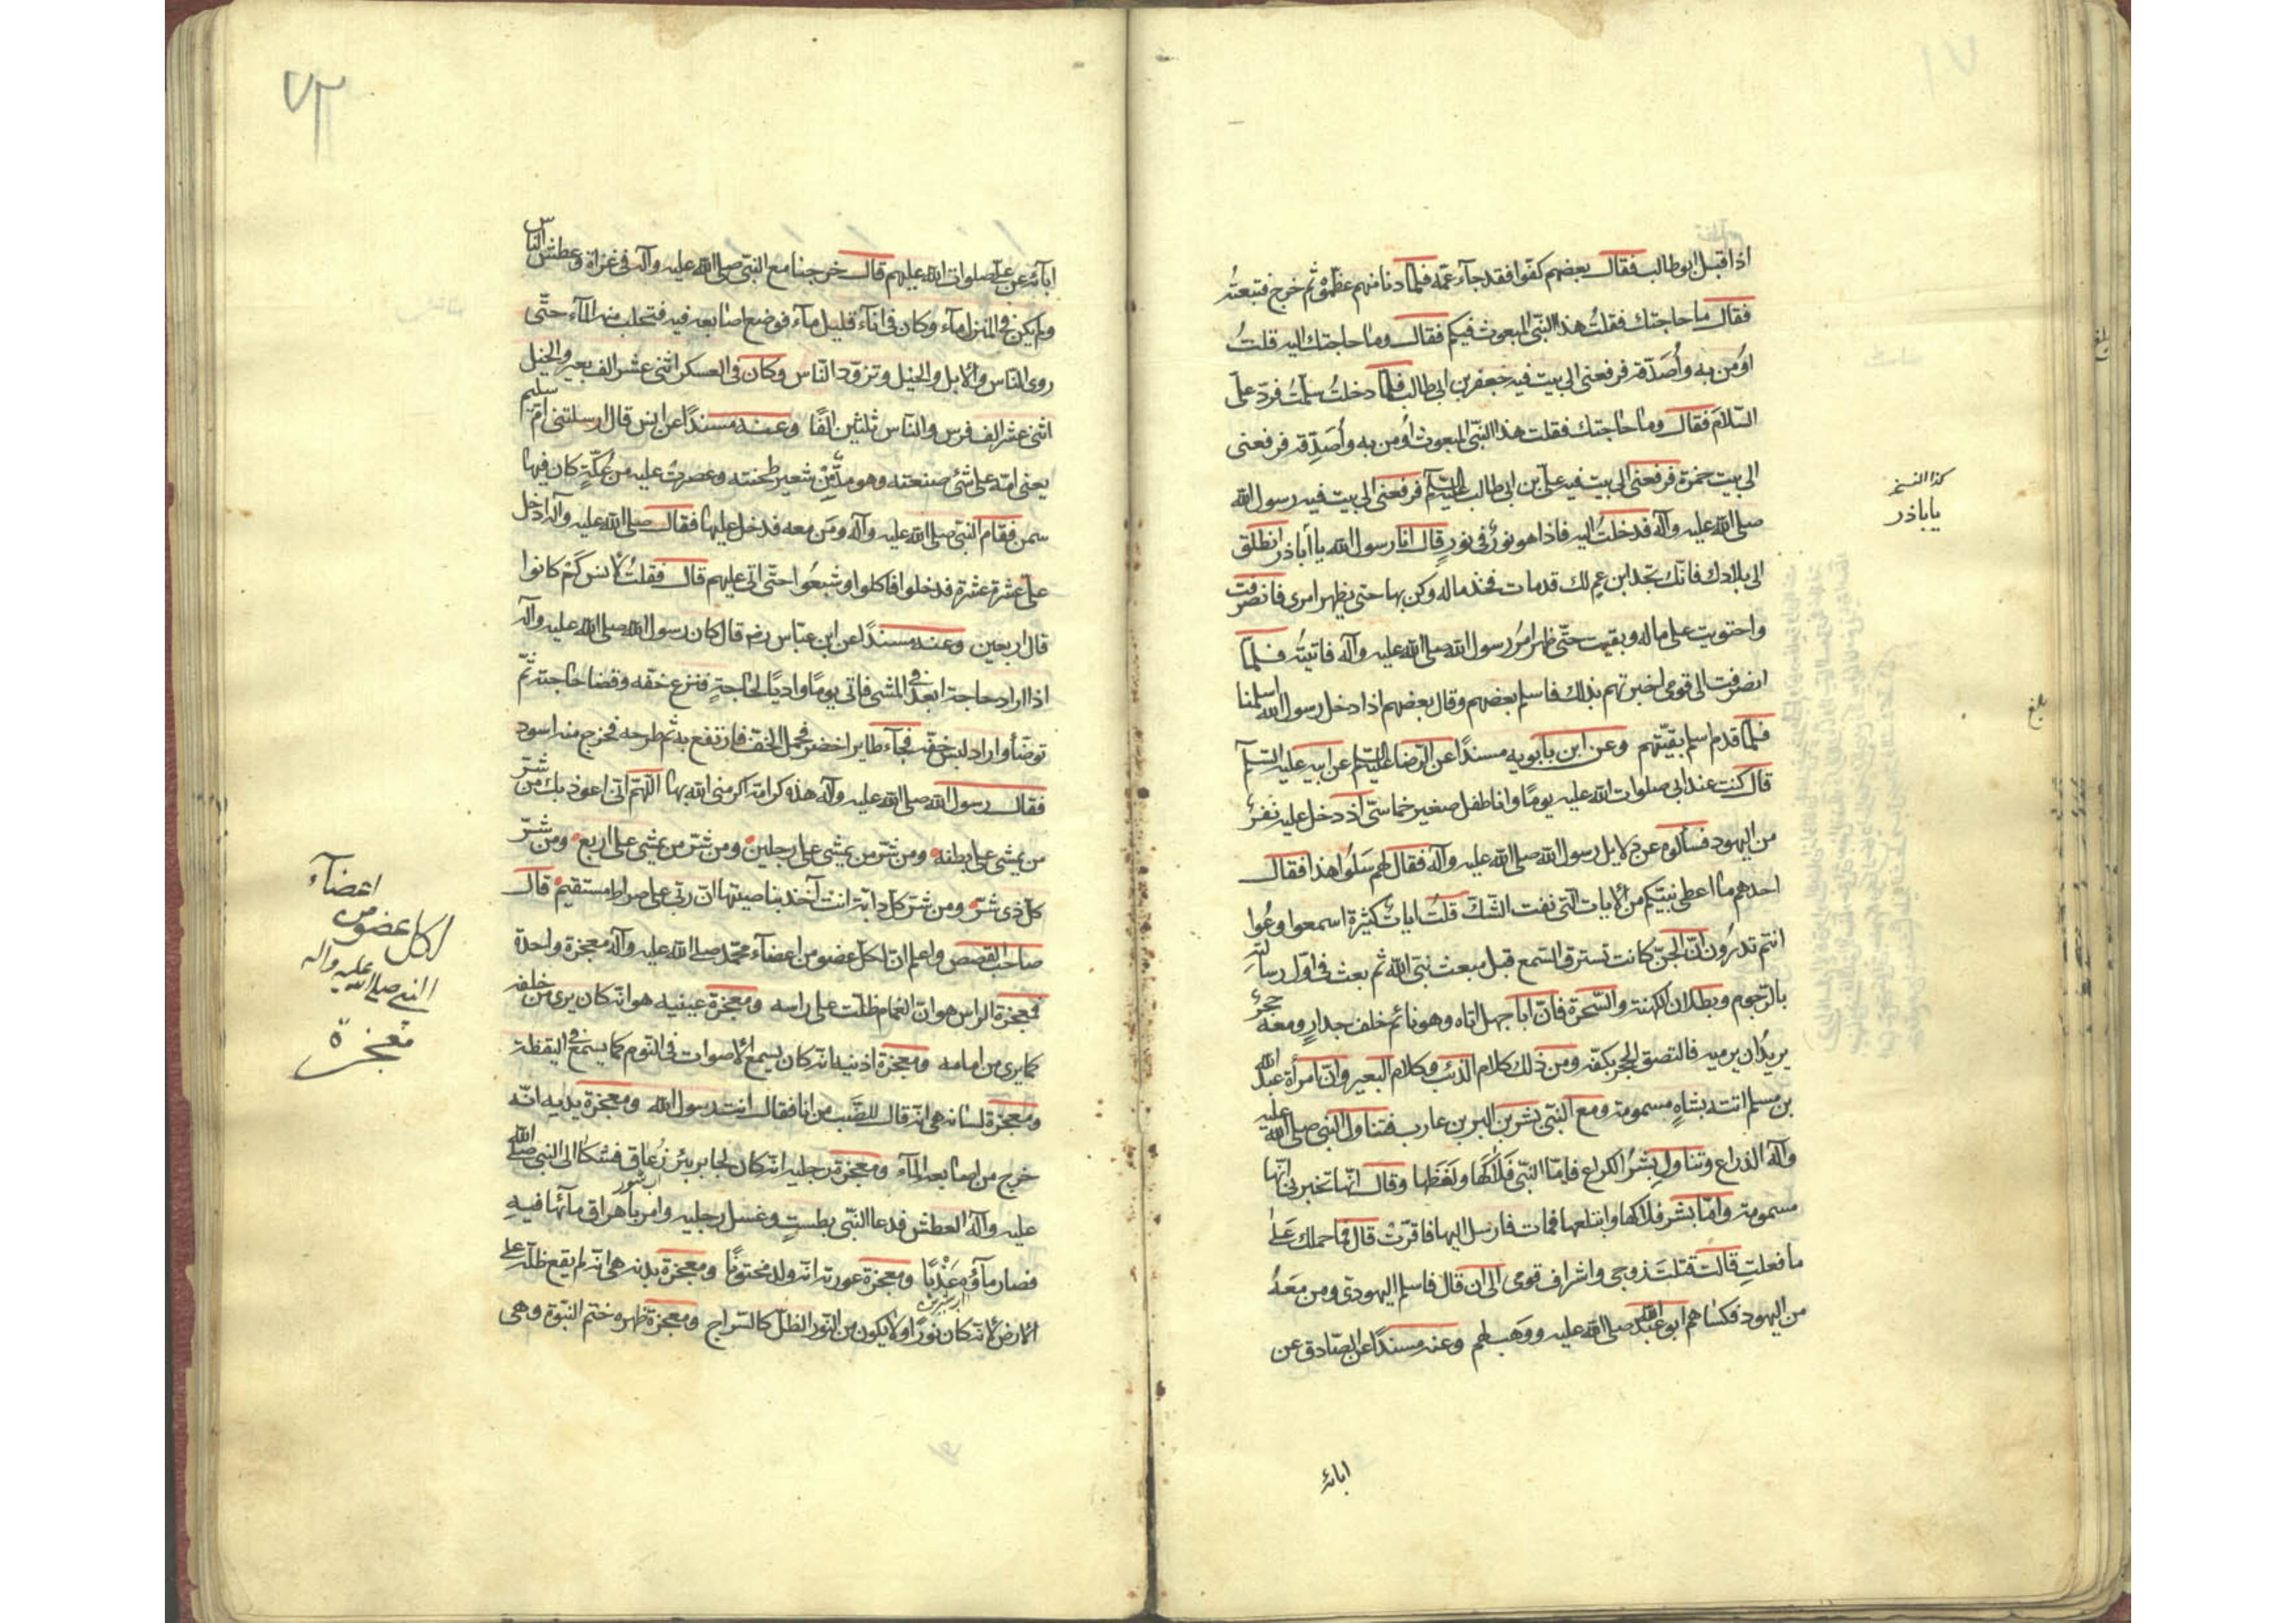 ٧١
اذا قبل ابو طالب فقال بعضهم كفّوا فقد جآء عمّه فلمّا دنا منهم عظّموْ ثم خرج فتبعتُه
فقال ما حاجتك فقلتُ هذا النّبي المبعوث فيكم فقال وما حاجتك اليه قلتُ
اوُمن به وأُصَدّقه فرفعنى الى بيت فيه جعفر بن ابى طالب فلمّا دخلتُ سلّمتُ فردّ علىّ
السّلاَم فقال وما حاجتك فقلت هذا النّبى المبعوث اُومن به وأُصَدِّقه فرفعنى
الى بيت حمزة فرفعنى الى بيت فيه علىّ بن ابى طالب عليه السلم فرفعنى الى بيت فيه رسول الله
صلى الله عليه وآله فدخلتُ اليه فاذا هو نورٌ فى نورٍ قال انا رسول الله يا أباذر انطلق
الى بلادك فانّك تجد ابن عمٍ لك قد مات فخذ ماله وكن بها حتى يظهر امرى فانصرفت
واحتويت على ماله وبقيت حتّى ظهر امرُ رسول الله صلى الله عليه وآله فاتيتُه فلمّا
انصرفت الى قومى اخبرتهم بذلك فاسلم بعضهم وقال بعضهم اذا دخل رسول الله اسلمنا
فلمّا قدم اسلم بقيّتهم وعن ابن بابويه مسندًا عن الرّضا عليه السلم عن ابيه عليه السّلم
قال كنت عند ابى صلوات الله عليه يومًا وانا طفل صغير خماسّى اذ دخل عليه نفرٌ
من اليهود فسألوه عن دلايل رسول الله صلى الله عليه وآله فقال لهم سَلُوا هذا فقال
احدهم ما اعطى نبيّكم من الايات التى نفت الشّكّ قلتُ اياتٌ كثيرة اسمعوا وعُوا
انتم تدرُون انّ الجنّ كانت تسترق السّمع قبل مبعث نبّى الله ثم بعث فى اوّل رسالته
بالرّجوم وبطلان الكهنة والسّحرة فانّ ابا جهل اتاه وهو نائم خلف جدارٍ ومعه حجرٌ
يريدُ ان يرميه فالتصق الحجر بكفّه ومن ذلك كلام الذئب وكلام البعير وانّ امرأة عبد الله
بن مسلم اتته بشاةٍ مسمومة ومع النّبى بشر بن البر بن عازب فتناول النّبى صلى الله عليه
وآله الذراع وتناول بشرُ الكراع فامّا النّبى فَلاكَها ولَفَظَها وقال انّها تخبرنى انّها
مسمومة وامّا بشر فلاكها وابتلعها فمات فارسل اليها فاقرّتْ قال فما حملك عَلىٰ
ما فعلتِ قالت قتلتَ زوجى واشراف قومى الى ان قال فاسلم اليهودى ومن مَعَهُ
من اليهود فكساهم ابو عبد الله صلى الله عليه ووَهَب لهم وعنه مسندًا عن الصّادق عن
ابائه
كذا النسخ
يا باذر
بلغ
٧٢
ابآئه عن علىّ صلوات الله عليهم قال خرجنا مع النّبى صلى الله عليه وآله فى غزاة وعطش النّاس
ولم يكن فى المنزل مآء وكان فى انآء قليل مآء فوضع اصابعه فيه فتحلب منه المآء حتّى
روى النّاس والابل والخيل وتزوّد النّاس وكان فى العسكر اثنى عشر الف بعير والخيل
اثنى عشر الف فرس والنّاس ثلثين الفًا وعنه مسندًا عن انس قال ارسلتنى امّ سليم
يعنى امّه على شئ صنعته وهو مدٌّ مِّنْ شعير طحنته وعصرتْ عليه من عُكّةٍ كان فيها
سمن فقام النّبى صلى الله عليه وآله ومَن معه فدخل عليها فقال صلى الله عليه وآله ادخل
علىّ عشرة عشرة فدخلوا فاكلوا وشبعُوا حتّى اتى عليهم قال فقلتُ لانس كَمْ كانوا
قال اربعين وعنه مسندًا عن ابن عبّاس رضه قال كان رسول الله صلى الله عليه وآله
اذا اراد حاجة ابعد فى المشى فاتى يومًا واديًا لحاجةٍ فنزع خفّه وقضا حاجته ثمّ
توضّأ واراد لبس خفّه فجآء طاير اخضر فحمل الخفّ فارتفع به ثم طرحه فخرج منه اسود
فقال رسول الله صلى الله عليه وآله هذه كرامة اكرمنى الله بها اللّهمّ انّى اعوذ بك من شرّ
من يمشى على بطنه ومن شرّ من يمشى على رجلين ومن شرّ من يمشى على اربع ومن شرّ
كلّ ذى شرّ ومن شرّ كلّ دابّة انت آخذ بناصيتها انّ ربّى على صراط مستقيم قال
صاحب القصص واعلم انّ لكلّ عضو من اعضآء محمّد صلى الله عليه وآله معجزة واحدة
فمعجزة الراس هو انّ الغمام ظلّت على راسه ومعجزة عينيه هو انّه كان يرى من خلفه
كما يرى من امامه ومعجزة اذنيه انّه كان يسمع الاصوات فى النّوم كما يسمع فى اليقظة
ومعجزة لسانه هى انّه قال للضَّب من انا فقال انت رسول الله ومعجزة يديه انّه
خرج من اصابعه المآء ومعجزة رجليه انّه كان لجابر بئر زُعاق فشكا الى النّبى صلّى الله
عليه وآله العطش فدعا النّبى بطستٍ وغسل رجليه وامر باهراق مآئها فيهِ
اب شور
فصار مآؤه عَذْبًا ومعجزة عورته انّه ولد مختونًا ومعجزة بدنه هى انّه لم يقع ظلّه على
اب شيرين
الارض لانّه كان نورًا ولا يكون من النّور الظل كالسّراج ومعجزة ظهره ختم النّبوة وهى
اعضآء
لكل عضو من
النبى صلى الله عليه وآله
معجزة